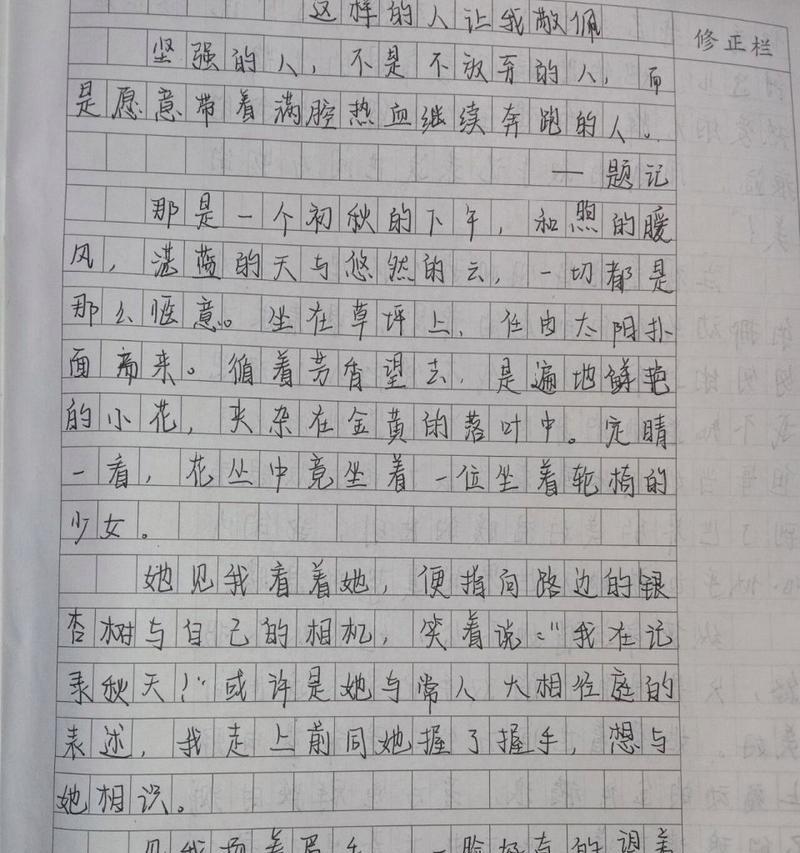 这样的人让我敬佩
修正栏
坚强的人，不是不放弃的人，而
是愿意带着满腔热血继续奔跑的人。
——题记
那是一个初秋的下午，和煦的暖
风，湛蓝的天与悠然的云，一切都是
那么惬意。坐在草坪上，任由太阳扑
面而来。循着芳香望去，是遍地鲜艳
的小花，夹杂在金黄的落叶中。定睛
一看，花丛中竟坐着一位坐着轮椅的
少女。
她见我看着她，便指向路边的银
杏树与自己的相机，笑着说：“我在记
录秋天！”或许是她与常人大相径庭的
表述，我走上前同她握了握手，想与
她相识。